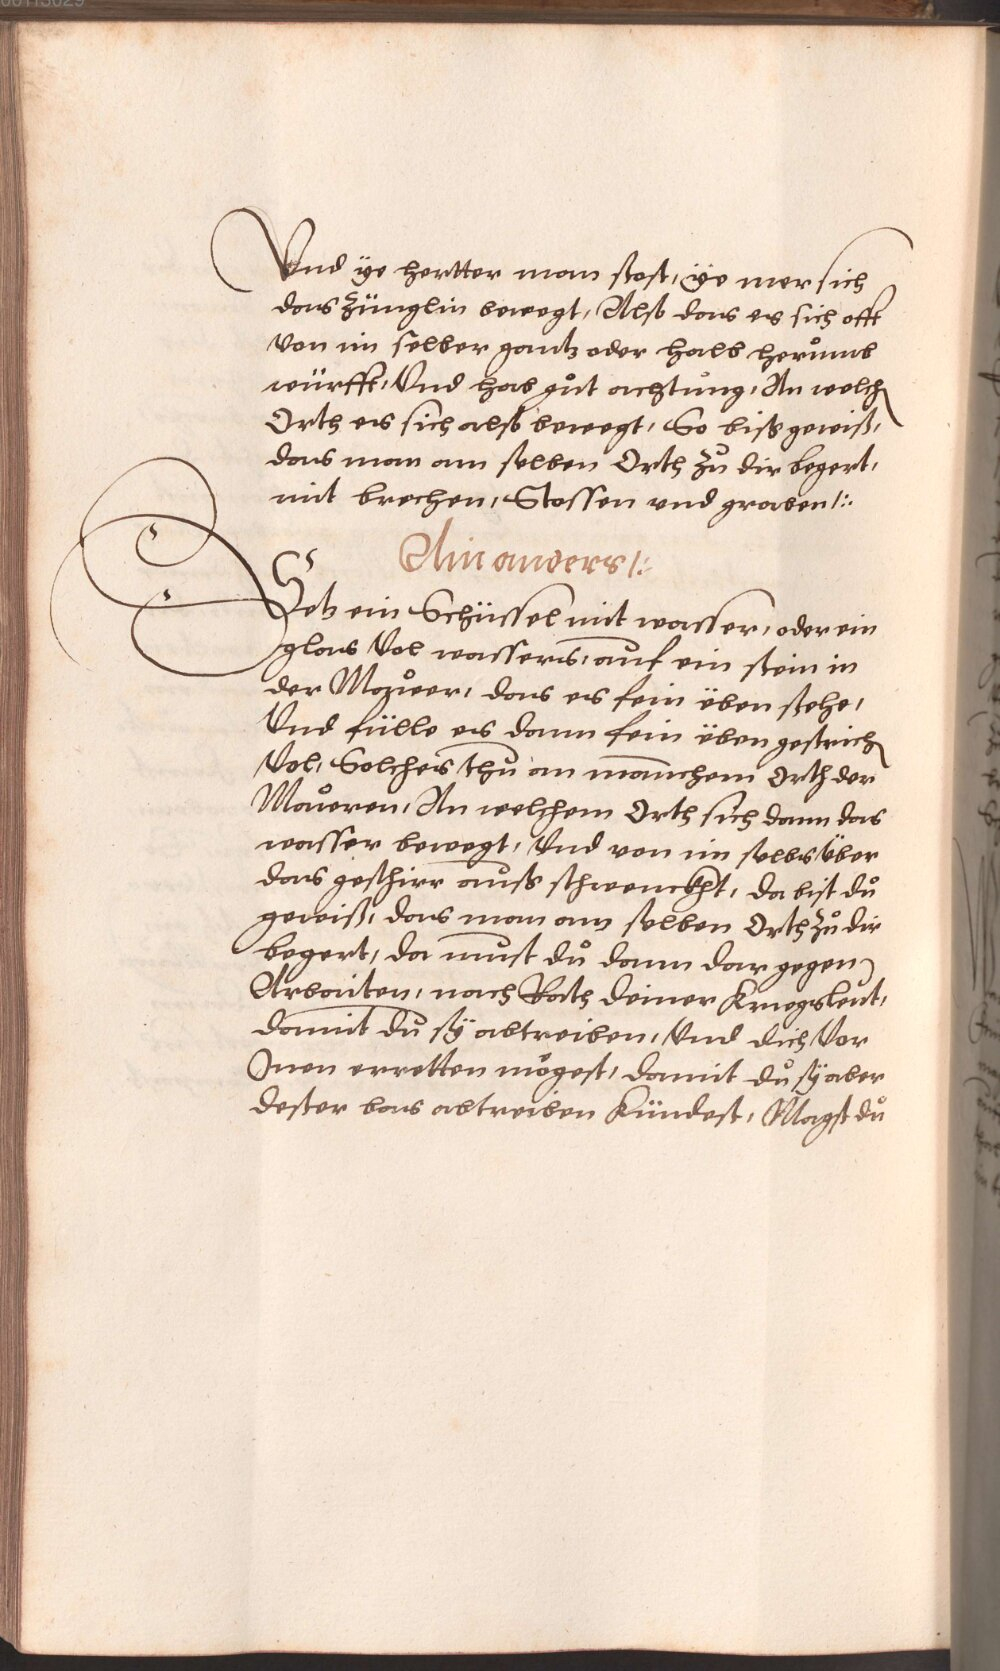 Vnd ÿe hertter man stost, Ÿe mer sich
das Zünglin bewegt, Alß das es sich offt
von im selber gantz oder halb herůmb
würfft, Vnd hab gůt achtůng, An welch
Orth es sich alß bewegt, So biß gewiß,
das man am selben Orth Zů dir begert,
mit brechen, Stossen vnd graben /:
Ain anders /:
Setz ein Schüssel mit wasser, oder ein
glas Vol wassers, auf ein stein in
der Maůer, das es fein ÿben stehe,
Vnd fülle es dann fein ÿben gestrich
Vol, Solches thů an manchem Orth der
Maůeren, An welchem Orth sich dann das
wasser bewegt, Vnd von im selbs über
das geschirr auß schwenckht, da bist dů
gewiß, das man am selben Orth Zů dir
begert, da must dů dann dar gegen
Arbaiten, nach Rath deiner Kriegsleut,
damit dů sÿ abtreiben, Vnd dich Vor
Inen erretten mögest, damit dů sÿ aber
dester bas abtreiben Kündest, Magst dů